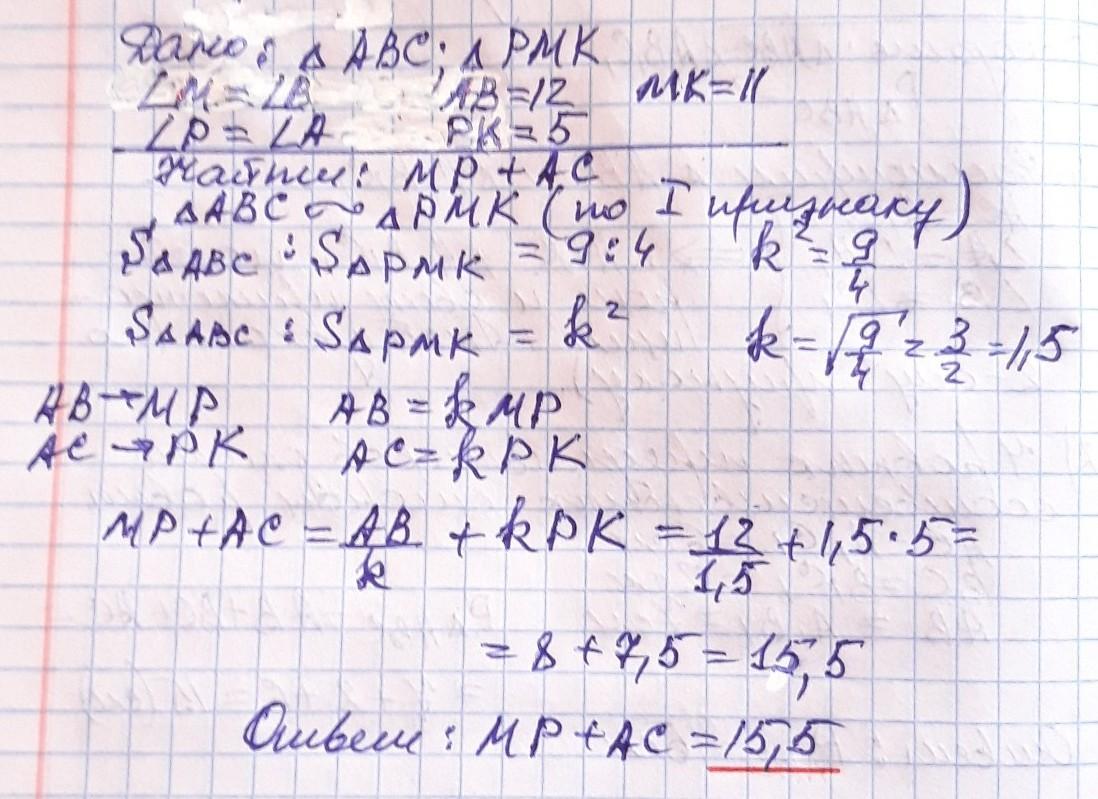 Дано: △ABC; △PMK
∠M = ∠B AB = 12 MK = 11
∠P = ∠A PK = 5
Найти: MP + AC
△ABC ∾ △PMK (по I признаку)
S△ABC : S△PMK = 9 : 4 k² = 9/4
S△ABC : S△PMK = k² k = √9/4 = 3/2 = 1,5
AB → MP AB = k MP
AC → PK AC = k PK
MP + AC = AB/k + k PK = 12/1,5 + 1,5 · 5 =
= 8 + 7,5 = 15,5
Ответ: MP + AC = 15,5